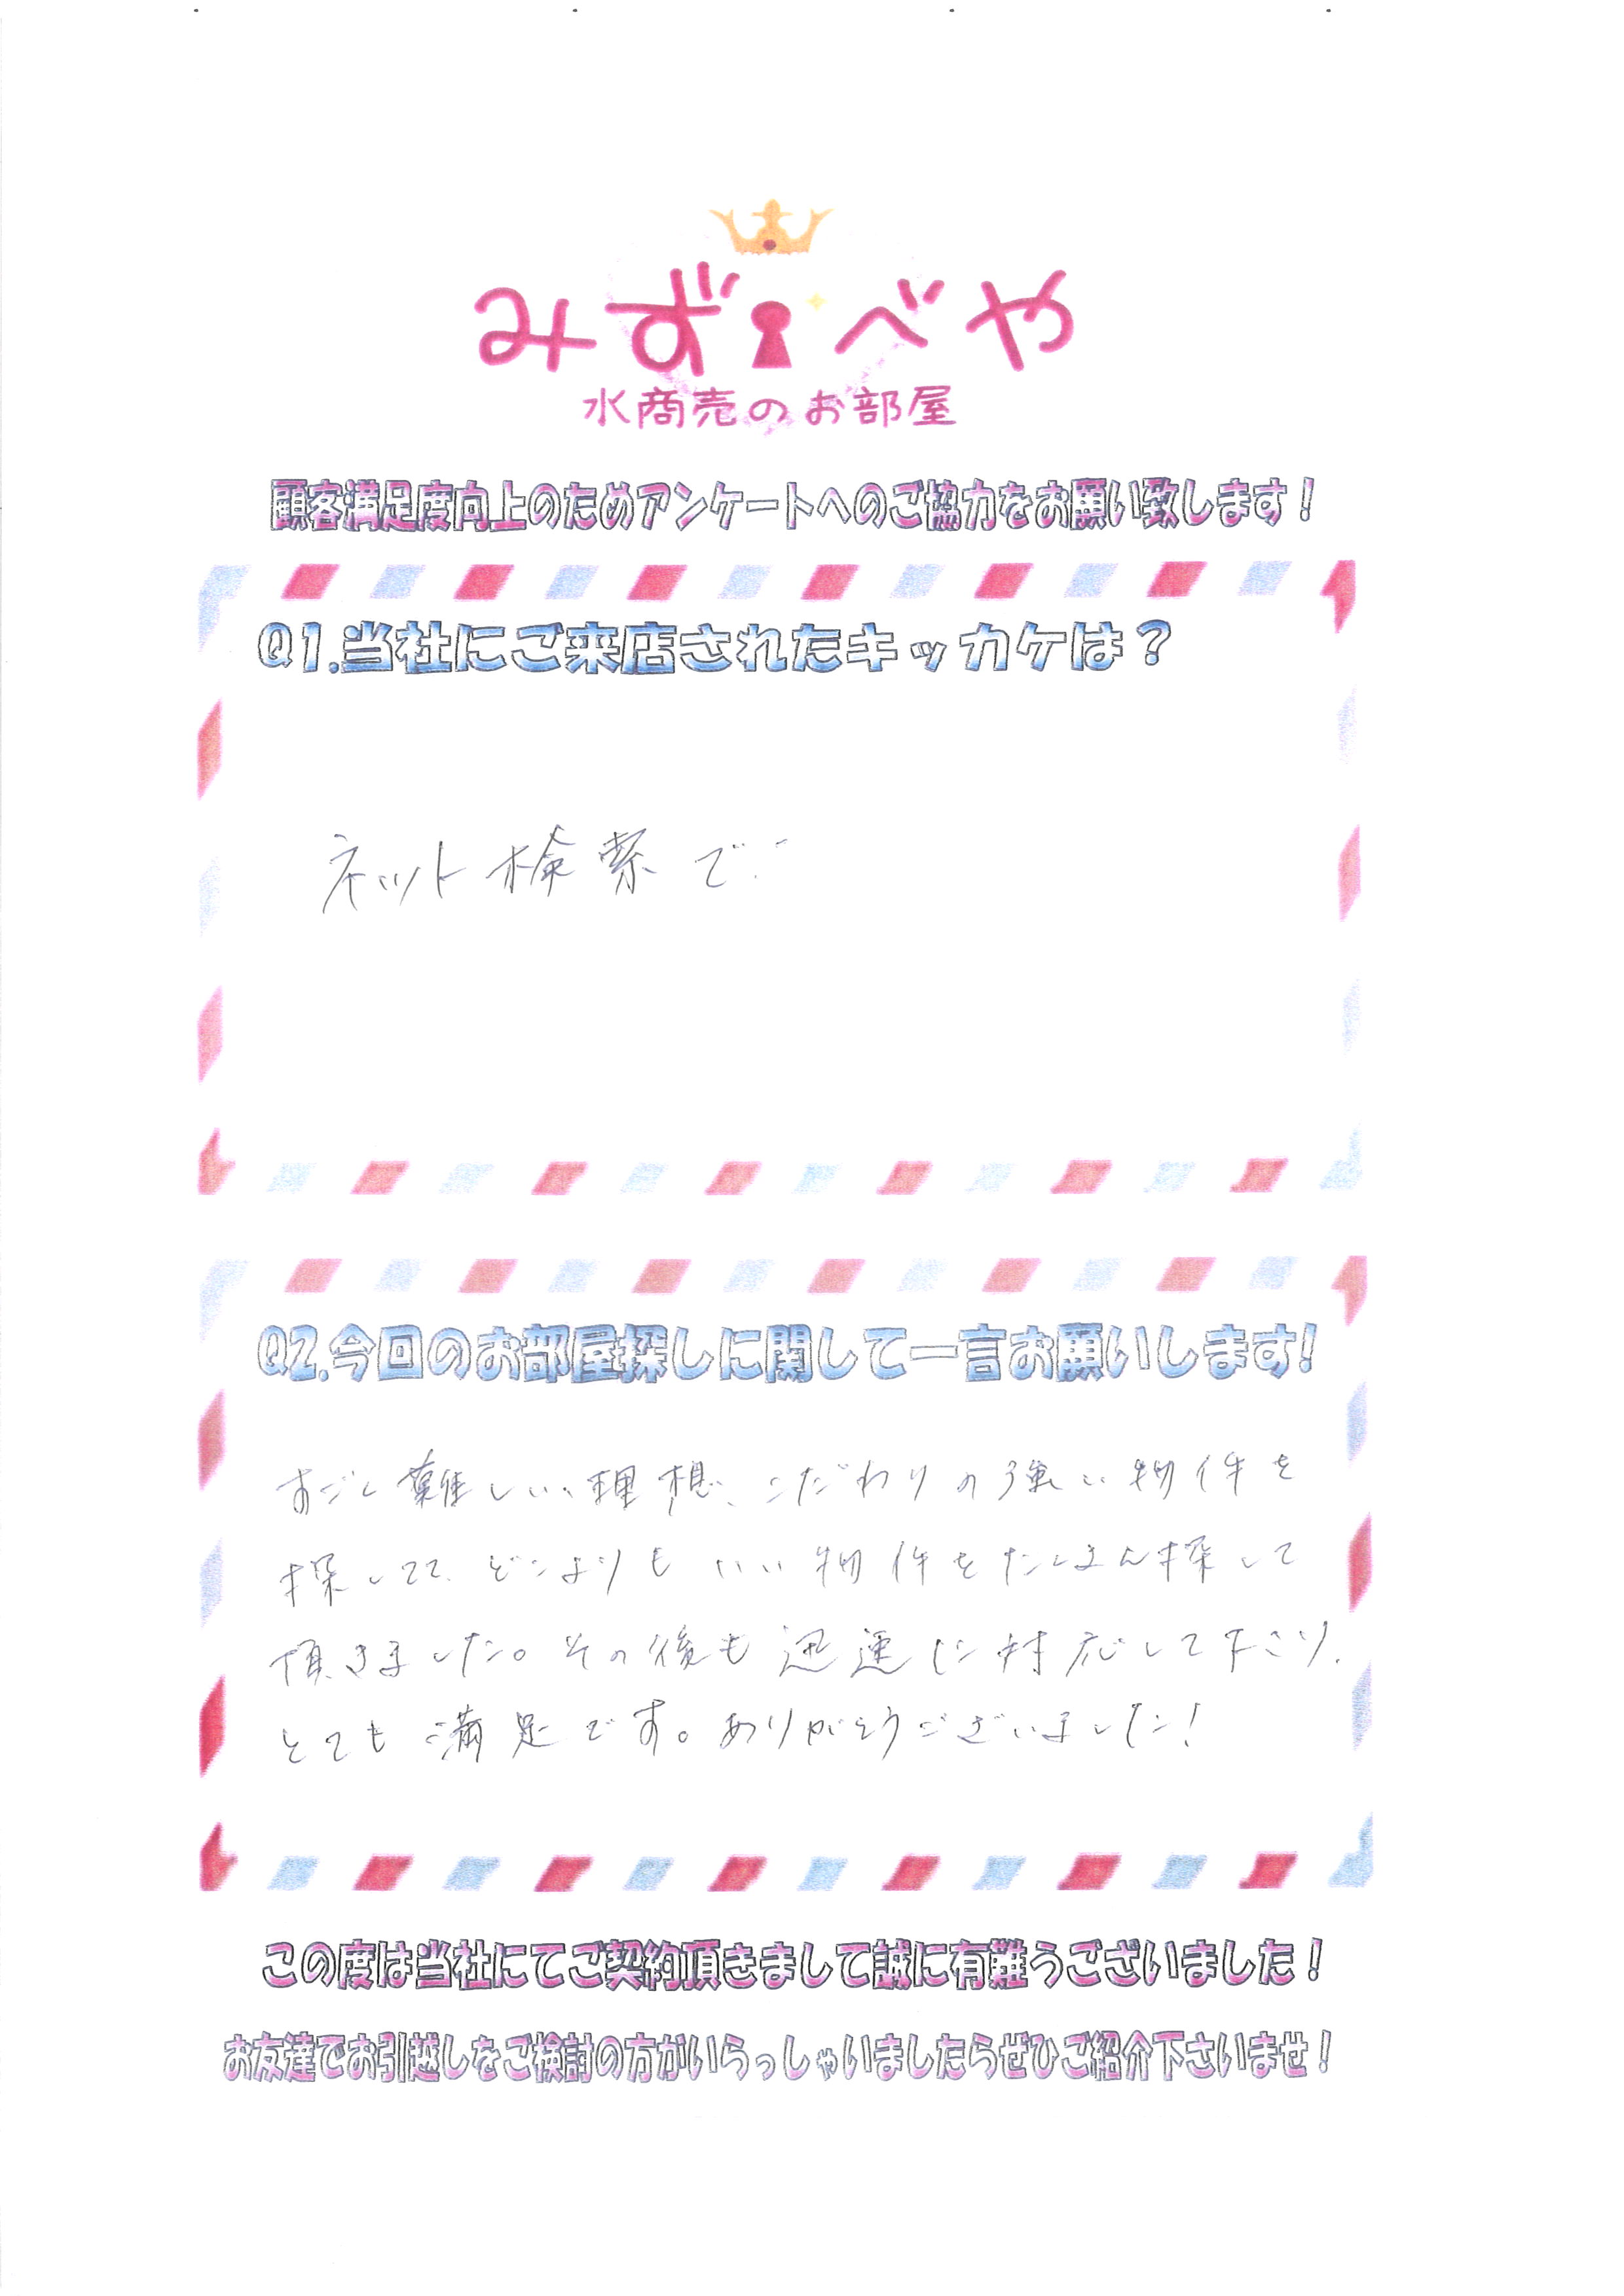 みずべや
水商売のお部屋
顧客満足度向上のためアンケートへのご協力をお願い致します！
Q1.当社にご来店されたキッカケは？
ネット検索で
Q2.今回のお部屋探しに関して一言お願いします!
すごく難しい、理想、こだわりの強い物件を
探してて、どこよりもいい物件をたくさん探して
頂きました。その後も迅速に対応して下さり、
とても満足です。ありがとうございました！
この度は当社にてご契約頂きまして誠に有難うございました！
お友達でお引越しをご検討の方がいらっしゃいましたらぜひご紹介下さいませ！